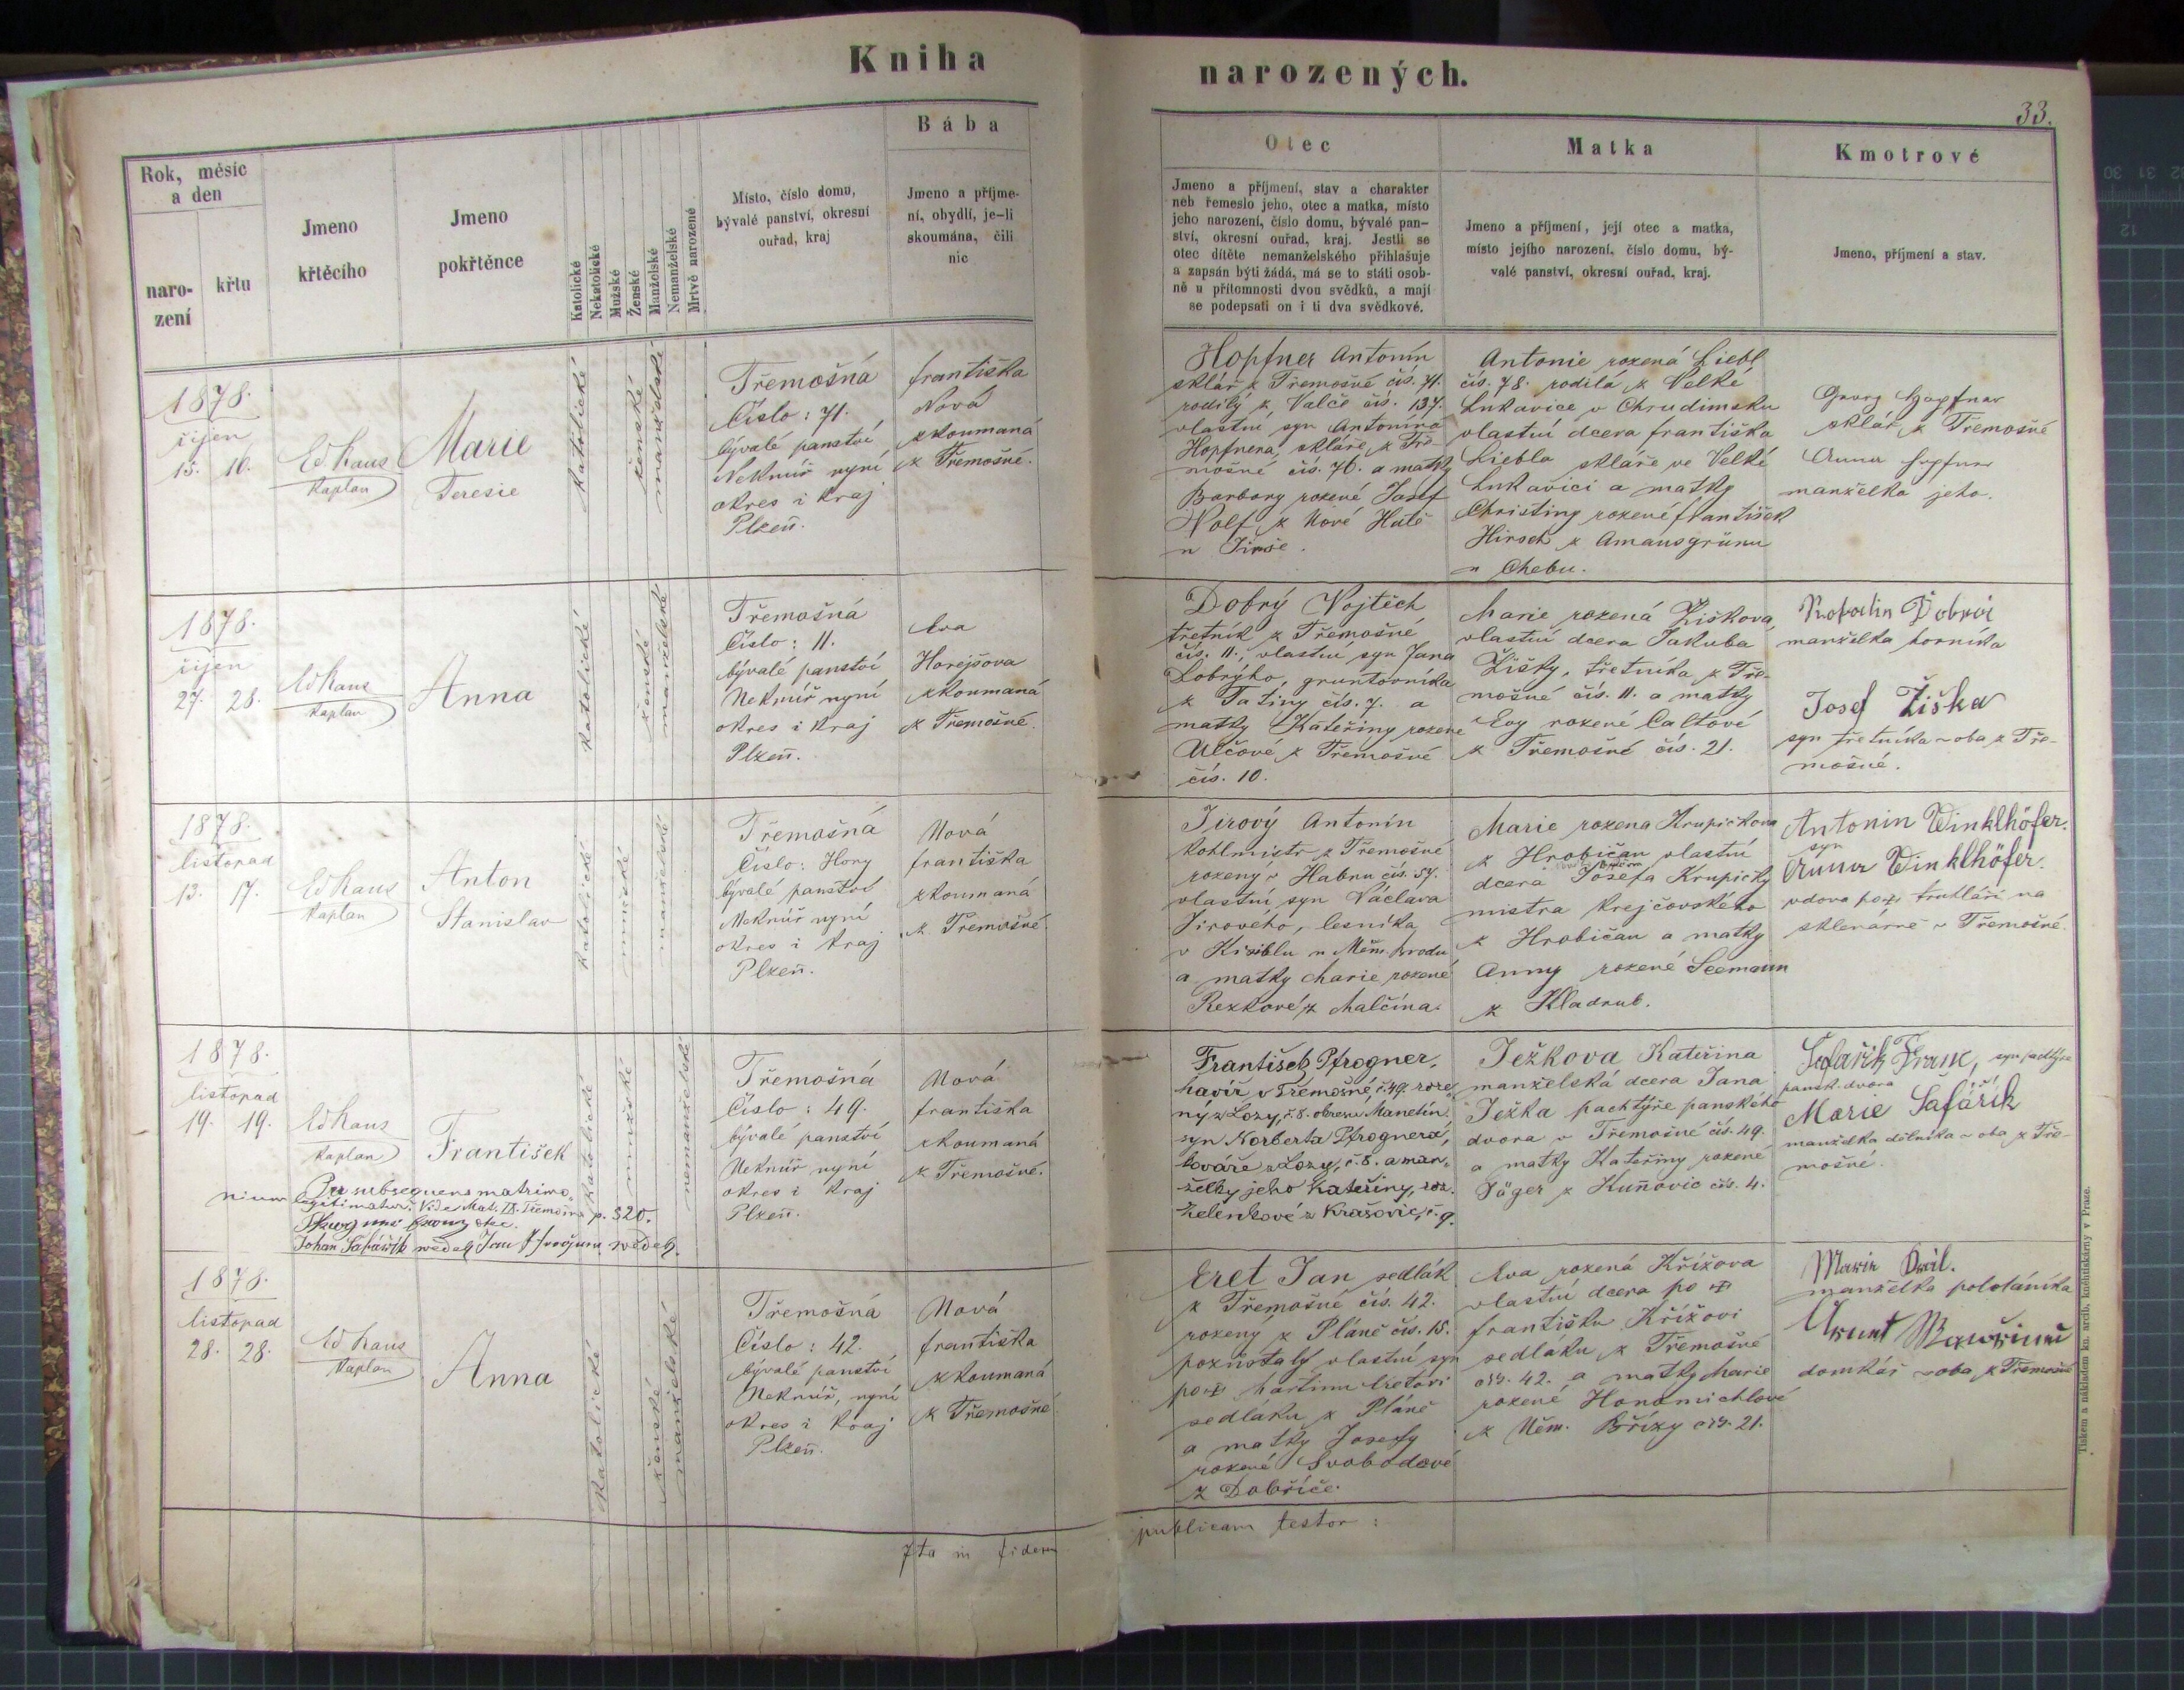 Kniha
narozených.
33.
Rok, měsíc
a den
naro-
zení
křtu
Jmeno
křtěcího
Jmeno
pokřtěnce
Katolické
Nekatolické
Mužské
Ženské
Manželské
Nemanželské
Mrtvě narozené
Místo, číslo domu,
bývalé panství, okresní
ouřad, kraj
Bába
Jmeno a příjme-
ní, obydlí, je-li
skoumána, čili
nic
Otec
Jmeno a příjmení, stav a charakter
neb řemeslo jeho, otec a matka, místo
jeho narození, číslo domu, bývalé pan-
ství, okresní ouřad, kraj. Jestli se
otec dítěte nemanželského přihlašuje
a zapsán býti žádá, má se to státi osob-
ně u přítomnosti dvou svědků, a mají
se podepsati on i ti dva svědkové.
Matka
Jmeno a příjmení, její otec a matka,
místo jejího narození, číslo domu, bý-
valé panství, okresní ouřad, kraj.
Kmotrové
Jmeno, příjmení a stav.
1878.
říjen
15. 16.
Ed Kaus
Kaplan
Marie
Teresie
katolické
ženské
manželské
Třemošná
Číslo: 71.
bývalé panství
Nekmíř nyní
okres i kraj
Plzeň.
Františka
Nová
zkoumaná
z Třemošné.
Hopfner Antonín
sklář z Třemošné čís. 71.
rodilý z Valče čís. 137.
vlastní syn Antonína
Hopfnera, skláře z Tře-
mošné čís. 76. a matky
Barbory rozené Josef
Wolf z Nové Hutě
u Jimše.
Antonie rozená Liebl
čís. 78. rodilá z Velké
Lukavice v Chrudimsku
vlastní dcera Františka
Liebla skláře ve Velké
Lukavici a matky
Christiny rozené František
Hirsch z Amausgrünu
u Chebu.
Georg Hopfner
sklář z Třemošné
Anna Hopfner
manželka jeho.
1878.
říjen
27. 28.
Ed Kaus
Kaplan
Anna
katolické
ženské
manželské
Třemošná
Číslo: 11.
bývalé panství
Nekmíř nyní
okres i kraj
Plzeň.
Eva
Horejšova
zkoumaná
z Třemošné.
Dobrý Vojtěch
třetník z Třemošné
čís. 11., vlastní syn Jana
Dobrýho, gruntovníka
z Tatiny čís. 7. a
matky Kateřiny rozené
Ulčové z Třemošné
čís. 10.
Marie rozená Žiškova,
vlastní dcera Jakuba
Žišky, třetníka z Tře-
mošné čís. 11. a matky
Evy rozené Caltové
z Třemošné čís. 21.
Dobrá
manželka horníka
Josef Žiška
syn třetníka – oba z Tře-
mošné.
1878.
listopad
13. 17.
Ed Kaus
Kaplan
Anton
Stanislav
katolické
mužské
manželské
Třemošná
Číslo: Hory
bývalé panství
Nekmíř nyní
okres i kraj
Plzeň.
Nová
Františka
zkoumaná
z Třemošné.
Jirový Antonín
kohlmistr z Třemošné
rozený v Habru čís. 57.
vlastní syn Václava
Jirového, lesníka
v Kisiblu u Něm. Brodu
a matky Marie rozené
Rezkové z Malčína.
Marie rozena Krupičkova
z Hrobičan vlastní
dcera Josefa Krupičky
mistra krejčovského
z Hrobičan a matky
Anny rozené Seemann
z Kladrub.
Antonin Winklhöfer.
syn
Anna Winklhöfer.
vdova po truhláři na
sklenárně v Třemošné.
1878.
listopad
19. 19.
Ed Kaus
Kaplan
František
katolické
mužské
nemanželské
Per subsequens matrimo-
nium legitimatur. Vide Mat. IX. Třemošná p. 320.
Johan Šafářík
Třemošná
Číslo: 49.
bývalé panství
Nekmíř nyní
okres i kraj
Plzeň.
Nová
Františka
zkoumaná
z Třemošné.
František Pfrogner,
havíř v Třemošné, č. 49. roze-
ný z Lozy, č. 8. okresu Manetín.
syn Norberta Pfrognera,
kováře z Lozy, č. 8. a man-
želky jeho Kateřiny, roz.
Zelenkové z Krašovic, č. 9.
Ježkova Kateřina
manželská dcera Jana
Ježka pachtýře panského
dvora v Třemošné čís. 49.
a matky Kateřiny rozené
Jäger z Kuňovic čís. 4.
Šafařík Franc, syn pachtýře
pansk. dvora
Marie Šafářík
manželka dělníka – oba z Tře-
mošné.
1878.
listopad
28. 28.
Ed Kaus
Kaplan
Anna
katolické
ženské
manželské
Třemošná
Číslo: 42.
bývalé panství
Nekmíř, nyní
okres i kraj
Plzeň.
Nová
Františka
zkoumaná
z Třemošné
Eret Jan sedlák
z Třemošné čís. 42.
rozený z Pláně čís. 15.
pozůstalý vlastní syn
po ✝ Martinu Eretovi
sedláku z Pláně
a matky Josefy
rozené Svobodové
z Dobříče.
Eva rozená Křížova
vlastní dcera po ✝
Františku Křížovi
sedláku z Třemošné
čís. 42. a matky Marie
rozené Hansmichlové
z Něm. Břízy čís. 21.
Marie Král.
manželka pololáníka
domkář – oba z Třemošné
Ita in fidem
publicam testor:
Tiskem a nákladem kn. arcib. knihtiskárny v Praze.